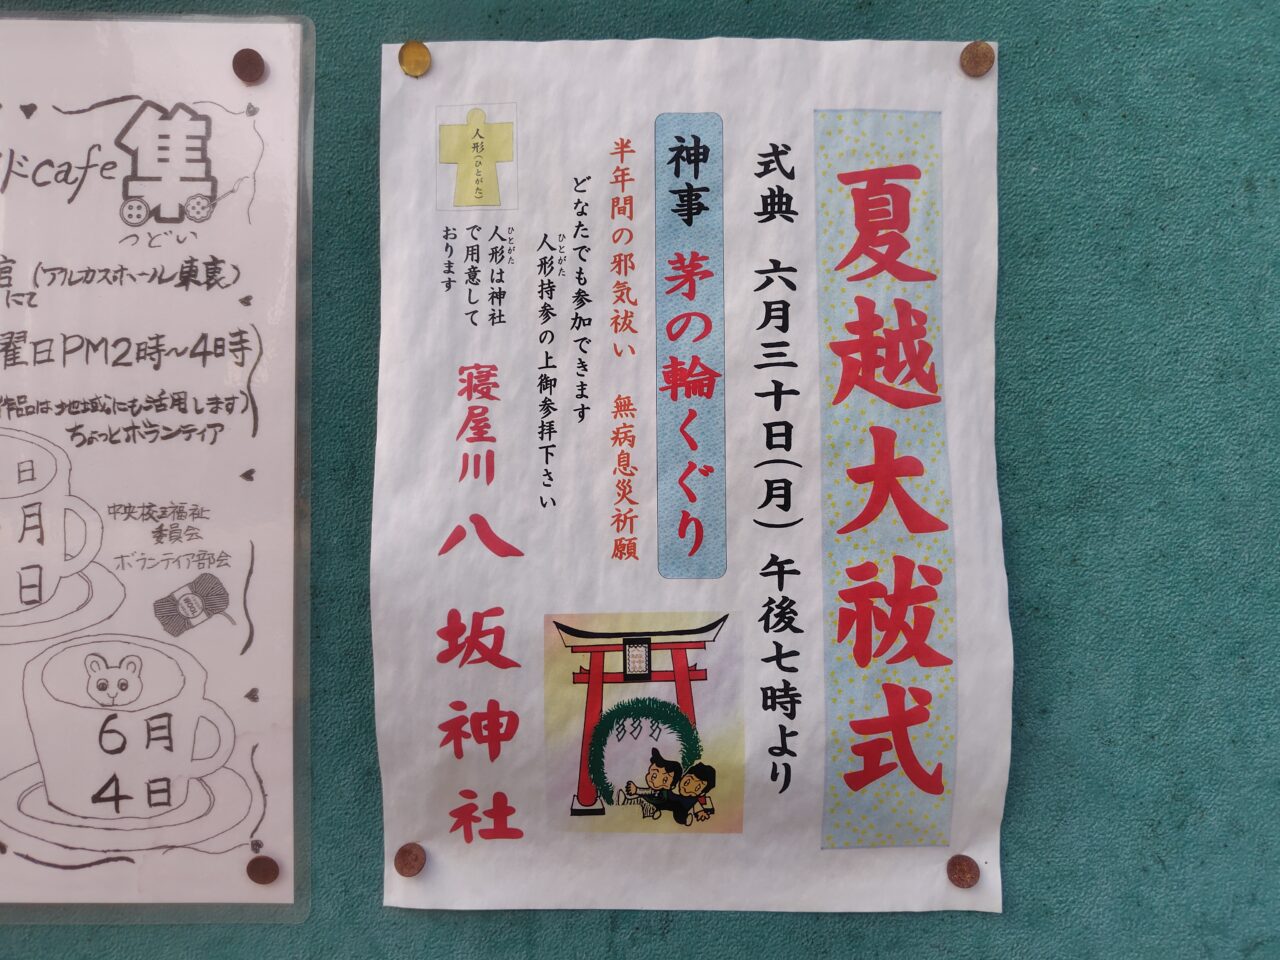 夏越大祓式
式典 六月三十日(月) 午後七時より
神事 茅の輪くぐり
半年間の邪気祓い 無病息災祈願
どなたでも参加できます
人形持参の上御参拝下さい
ひとがた
人形(ひとがた)
人形は神社
ひとがた
で用意して
おります
寝屋川 八坂神社
ドcafe 集
つどい
(アルカスホール東裏)
にて
曜日PM2時~4時
作品は地域にも活用します)
ちょっとボランティア
日
月
日
中央校区福祉
委員会
ボランティア部会
6月
4日